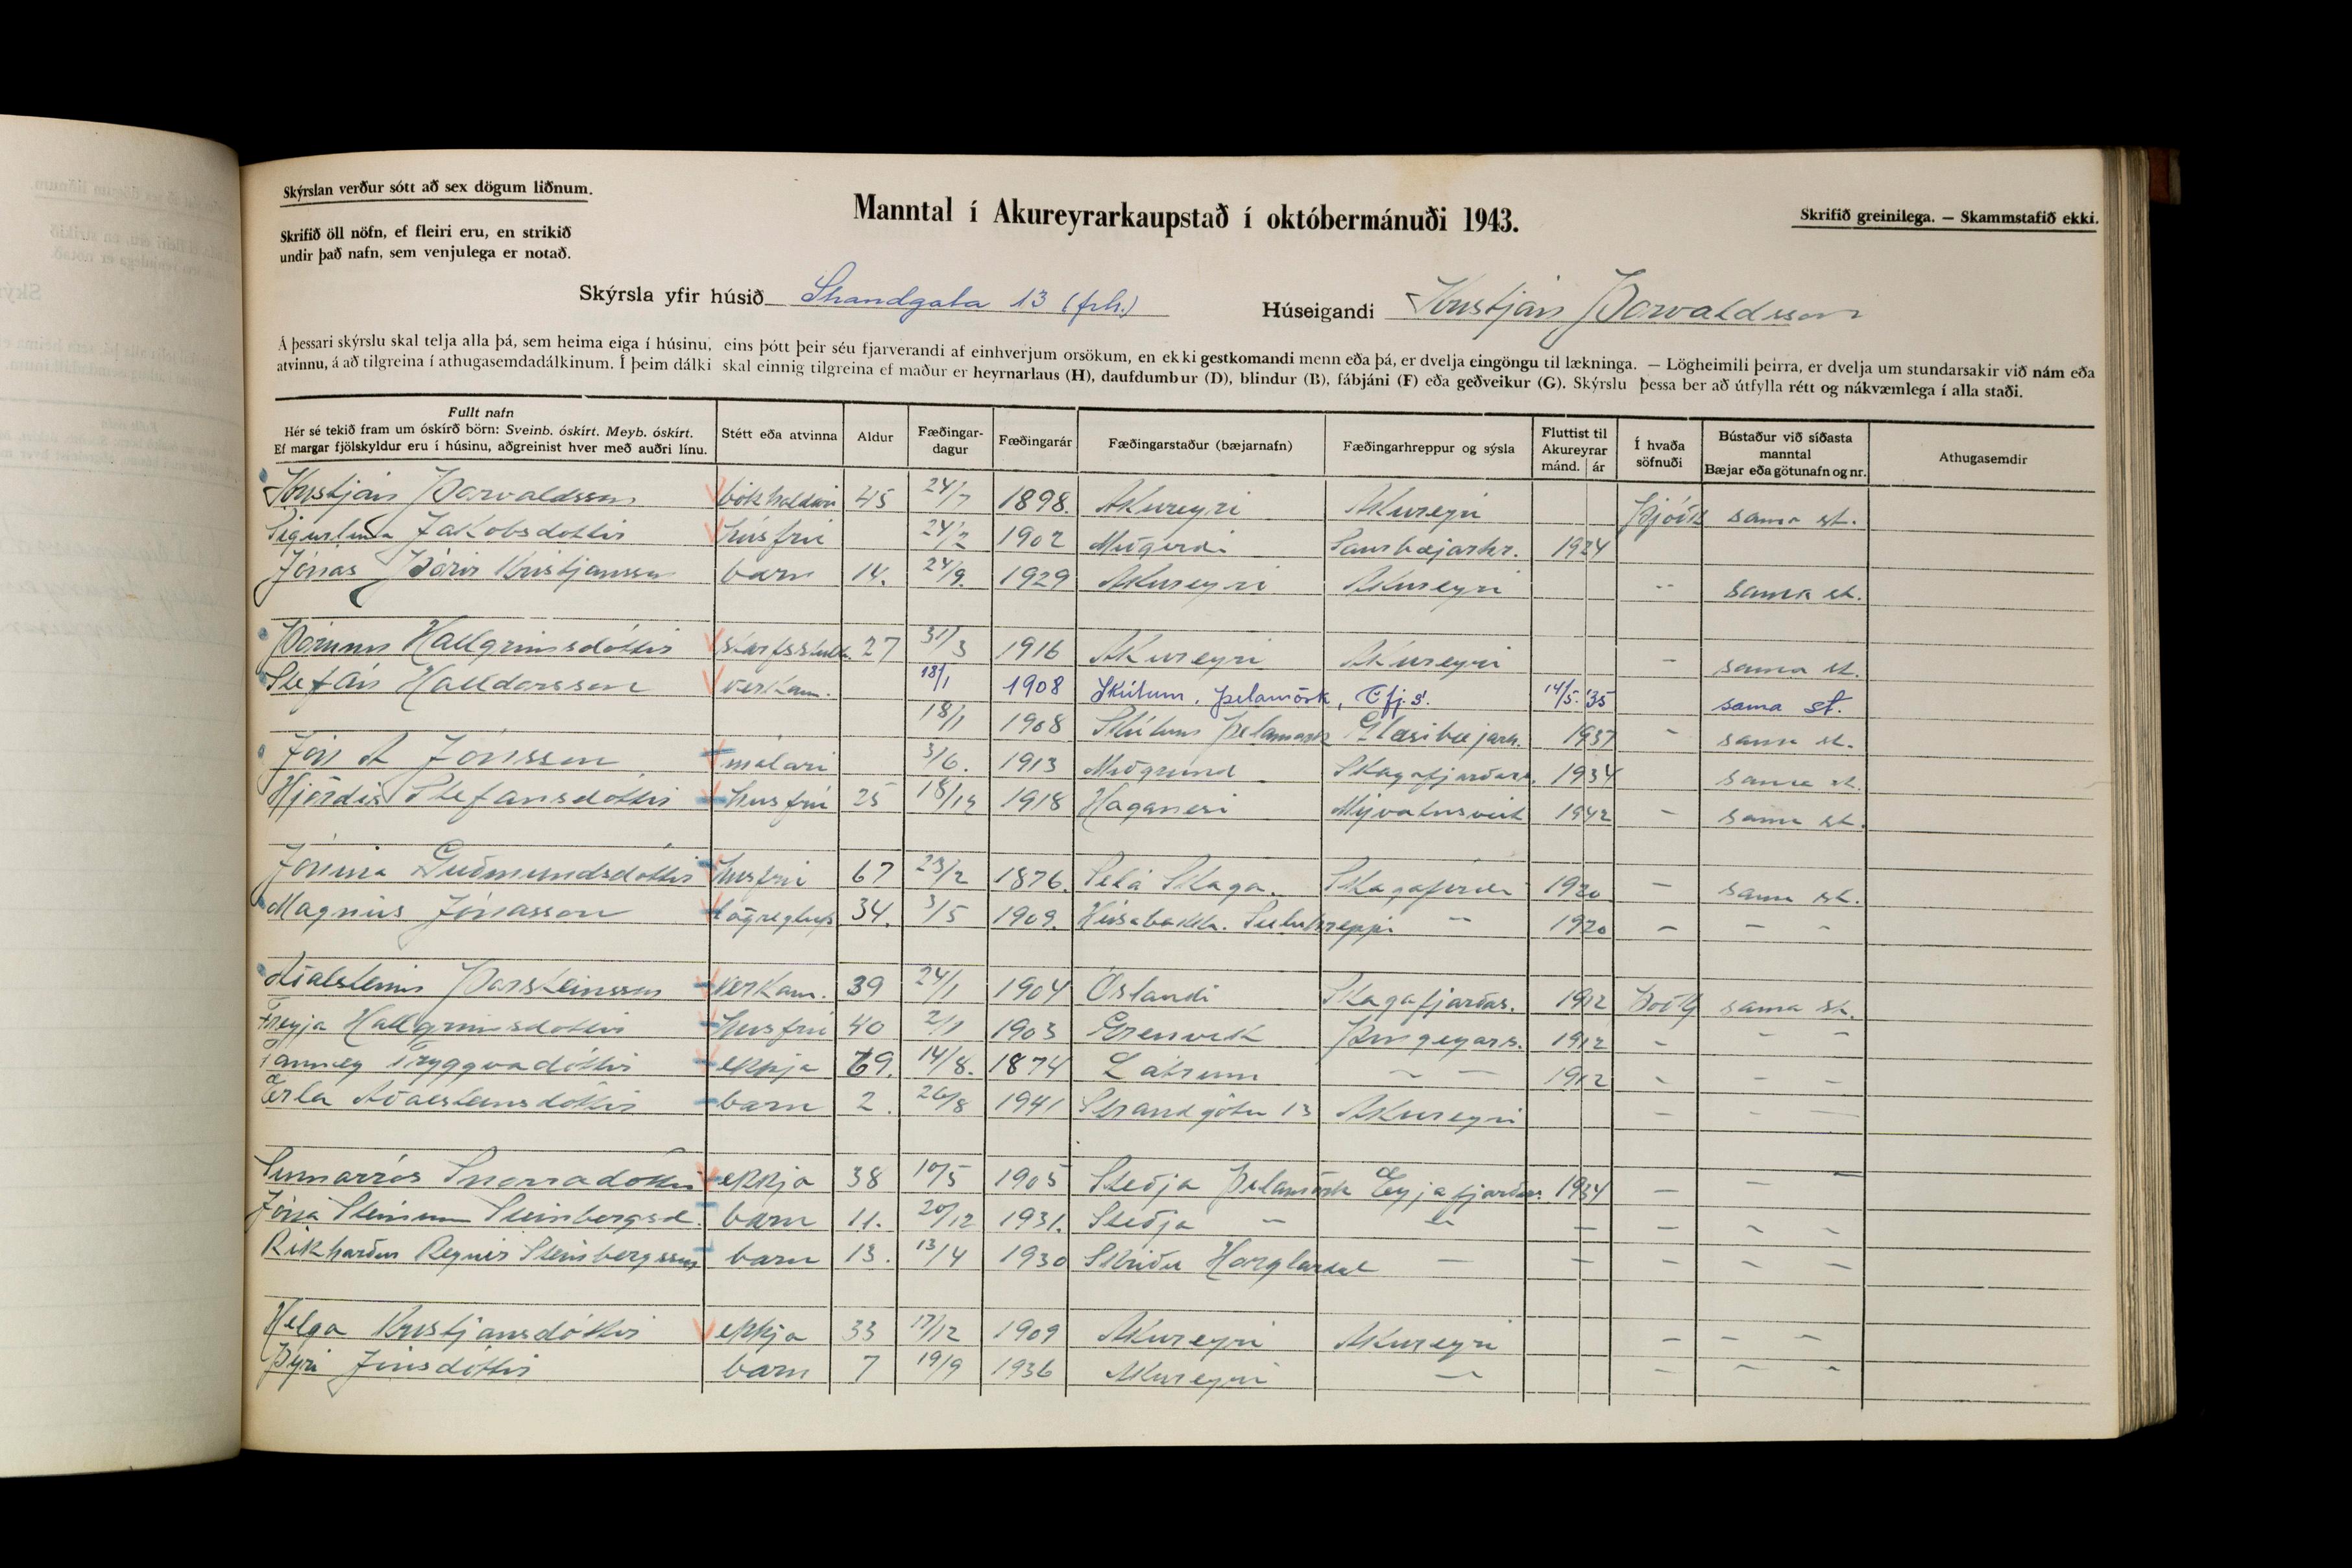 Skýrslan verður sótt að sex dögum liðnum.
Skrifið öll nöfn, ef fleiri eru, en strikið
undir það nafn, sem venjulega er notað.
Manntal í Akureyrarkaupstað í októbermánuði 1943.
Skrifið greinilega. — Skammstafið ekki.
Skýrsla yfir húsið Strandgata 13 (frh.) Húseigandi Kristján Þorvaldsson
Á þessari skýrslu skal telja alla þá, sem heima eiga í húsinu, eins þótt þeir séu fjarverandi af einhverjum orsökum, en ekki gestkomandi menn eða þá, er dvelja eingöngu til lækninga. — Lögheimili þeirra, er dvelja um stundarsakir við nám eða
atvinnu, á að tilgreina í athugasemdadálkinum. Í þeim dálki skal einnig tilgreina ef maður er heyrnarlaus (H), daufdumbur (D), blindur (B), fábjáni (F) eða geðveikur (G). Skýrslu þessa ber að útfylla rétt og nákvæmlega í alla staði.
Fullt nafn
Hér sé tekið fram um óskírð börn: Sveinb. óskírt. Meyb. óskírt.
Ef margar fjölskyldur eru í húsinu, aðgreinist hver með auðri línu.
Stétt eða atvinna
Aldur
Fæðingar-
dagur
Fæðingarár
Fæðingarstaður (bæjarnafn)
Fæðingarhreppur og sýsla
Fluttist til
Akureyrar
mánd. ár
Í hvaða
söfnuði
Bústaður við síðasta
manntal
Bæjar eða götunafn og nr.
Athugasemdir
Kristján Þorvaldsson bókhaldari 45 24/7 1898. Akureyri Akureyri Þjóðk sama st.
Sigurlína Jakobsdóttir húsfrú 24/2 1902 Miðgerði Saurbæjarhr. 1924
Jónas Þórir Kristjánsson barn 14. 24/9. 1929 Akureyri Akureyri -- sama st.
Þórunn Hallgrímsdóttir starfsstúlk. 27 31/3 1916 Akureyri Akureyri - sama st.
Stefán Halldórsson verkam. 18/1 1908 Skútum, Þelamörk, Eyj.s. 14/5. '35 sama st.
18/1 1908 Skútum Þelamörk Glæsibæjarh. 1937 - sama st.
Jón A Jónsson málari 3/6. 1913 Miðgrund Skagafjarðars. 1934 sama st.
Hjördís Stefánsdóttir húsfrú 25 18/12 1918 Haganesi Mývatnsveit 1942 - sama st.
Jónína Guðmundsdóttir húsfrú 67 23/2 1876. Selá Skaga. Skagafirði 1920 - sama st.
Magnús Jónasson lögregluþ. 34. 3/5 1909. Húsabakka. Seiluhreppi -- 1920 - - -
Aðalsteinn Þorsteinsson verkam. 39 24/1 1904 Óslandi Skagafjarðas. 1912 Þjóðk sama st.
Freyja Hallgrímsdóttir húsfrú 40 2/1 1903 Grenvík Þingeyars. 1912 - - -
Fanney Tryggvadóttir ekkja 69. 14/8. 1874 Látrum - - 1912 - - -
Erla Aðalsteinsdóttir barn 2. 26/8 1941 Strandgötu 13 Akureyri - - -
Sumarrós Snorradóttir ekkja 38 10/5 1905 Steðja Þelamörk Eyjafjarðars. 1934 - - -
Jóna Steinunn Steinbergsd. barn 11. 20/12 1931. Steðja - - - - - -
Ríkharður Reynir Steinbergsson barn 13. 13/4 1930 Skriðu Hörgárdal - - - - -
Helga Kristjánsdóttir ekkja 33 17/12 1909 Akureyri Akureyri - - -
Þyri Jónsdóttir barn 7 19/9 1936 Akureyri - - - -